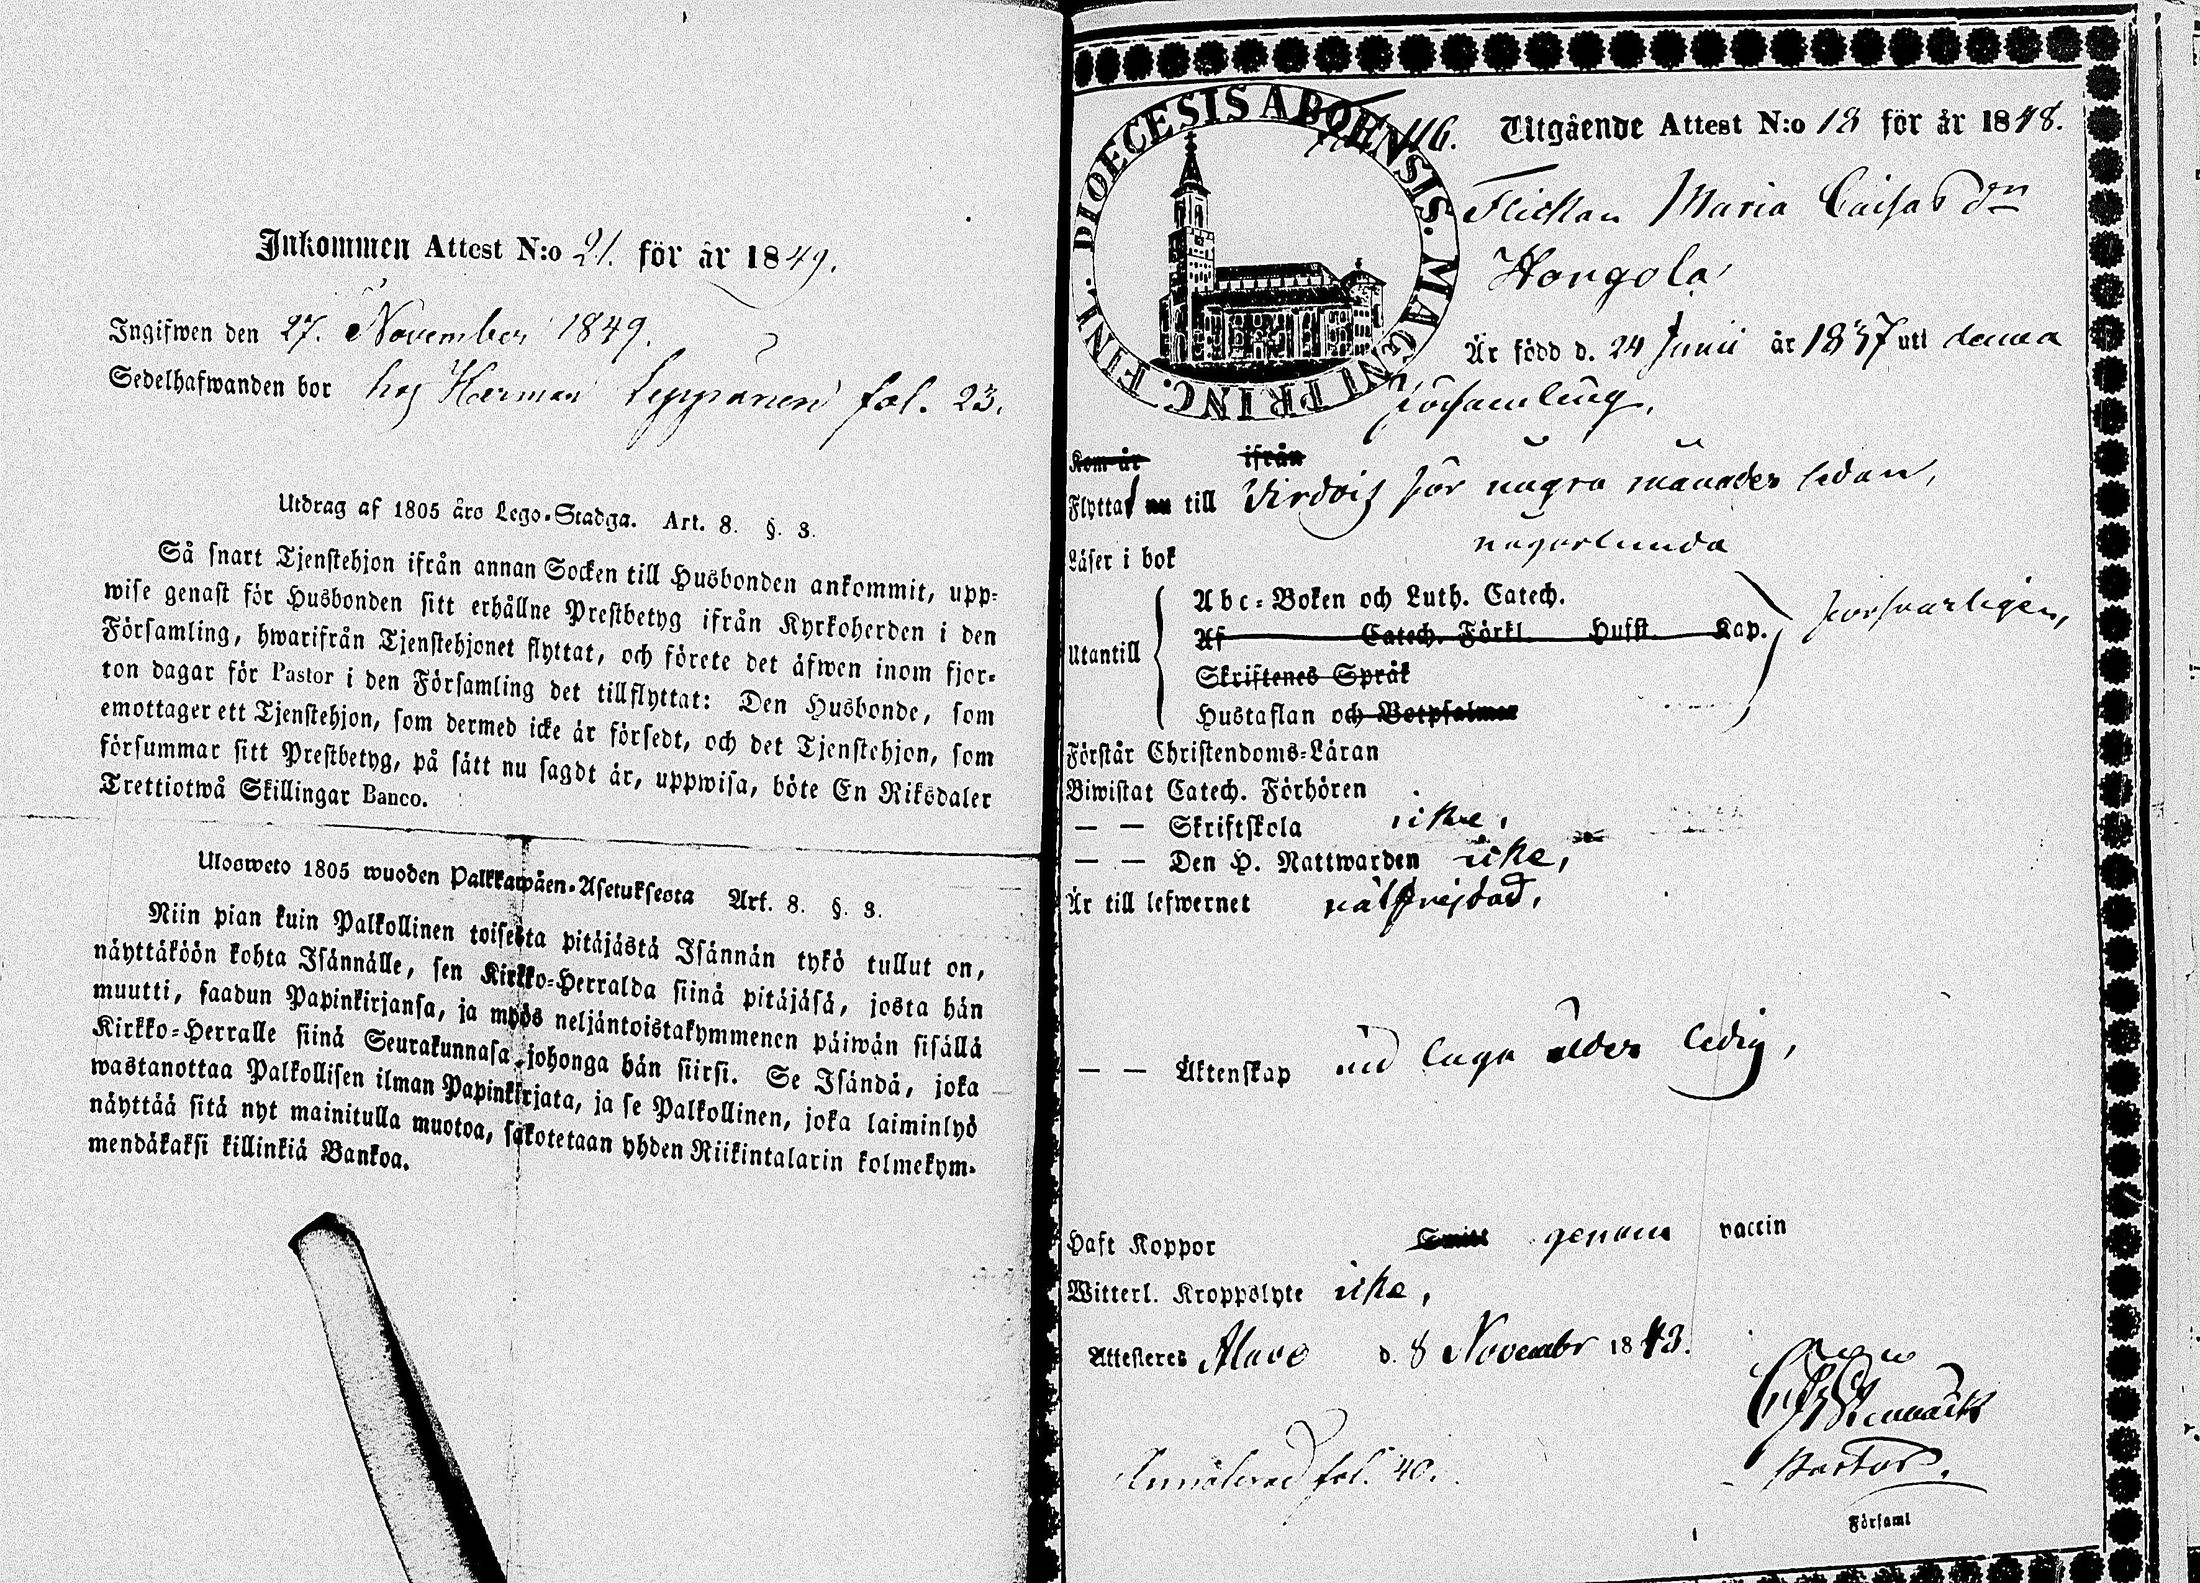 Inkommen Attest N:o 21. för år 1849.
Ingifwen den 27. November 1849.
Sedelhafwanden bor hos Herman Leppänen fol. 23.
Utdrag af 1805 års Lego-Stadga. Art. 8. §. 3.
Så snart Tjenstehjon ifrån annan Socken till Husbonden ankommit, upp-
wise genast för Husbonden sitt erhållne Prestbetyg ifrån Kyrkoherden i den
Församling, hwarifrån Tjenstehjonet flyttat, och förete det äfwen inom fjor-
ton dagar för Pastor i den Församling det tillflyttat: Den Husbonde, som
emottager ett Tjenstehjon, som dermed icke är försedt, och det Tjenstehjon, som
försummar sitt Prestbetyg, på sätt nu sagdt är, uppwisa, böte En Riksdaler
Trettiotwå Skillingar Banco.
Ulosweto 1805 wuoden Palkkawäen-Asetuksesta Art. 8. §. 3.
Niin pian kuin Palkollinen toisesta pitäjästä Isännän tykö tullut on,
näyttäköön kohta Isännälle, sen Kirkko-Herralda siinä pitäjäsä, josta hän
muutti, saadun Papinkirjansa, ja myös neljäntoistakymmenen päiwän sisällä
Kirkko-Herralle siinä Seurakunnasa, johonga hän siirsi. Se Isändä, joka
wastanottaa Palkollisen ilman Papinkirjata, ja se Palkollinen, joka laiminlyö
näyttää sitä nyt mainitulla muotoa, sakotetaan yhden Riikintalarin kolmekym-
mendäkaksi killinkiä Bankoa.
DIOECESIS ABOENSIS. MAGNI PRINC. FINL.
116. Utgående Attest N:o 18 för år 1848.
Flickan Maria Caisas dn
Hangola
Är född d. 24 Junii år 1837 uti denna
församling.
Kom år ifrån
Flyttat nu till Virdois för några månader sedan,
Läser i bok någorlunda
Utantill
Abc-Boken och Luth. Catech.
Af Catech. Förkl. Hufst. Kap.
Skriftenes Språk
Hustaflan och Botpsalmer
försvarligen,
Förstår Christendoms-Läran
Biwistat Catech. Förhören
— — Skriftskola icke,
— — Den H. Nattwarden icke,
Är till lefwernet välfrejdad,
— — Äktenskap vid laga ålder ledig,
Haft Koppor Smitt genom vaccin
Witterl. Kroppslyte icke,
Attesteres Alavo d. 8 Novembr 1848.
Stenbäck
Pastor.
Församl
fol. 40.